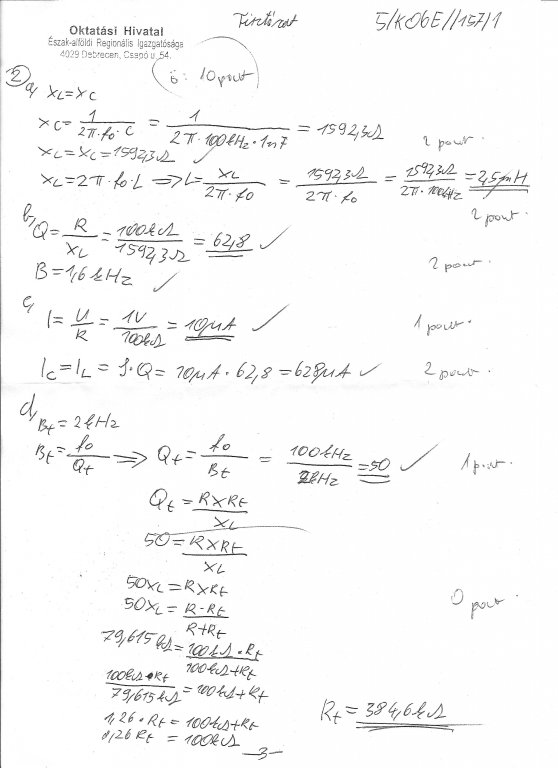 Oktatási Hivatal
Észak-alföldi Regionális Igazgatósága
4029 Debrecen, Csapó u. 54.
Tisztázat
5/KOBE//157/1
ö: 10 pont
2 a, XL=XC
XC = 1/(2π·f0·C) = 1/(2π·100kHz·1nF) = 1592,3Ω
2 pont.
XL=XC=1592,3Ω ✓
XL=2π·f0·L ⇒ L= XL/(2π·f0) = 1592,3Ω/(2π·f0) = 1592,3Ω/(2π·100kHz) = 2,5mH
2 pont.
b, Q= R/XL = 100kΩ/1592,3Ω = 62,8 ✓
B = 1,6kHz ✓
2 pont.
c, I= U/R = 1V/100kΩ = 10μA ✓
1 pont.
IC = IL = I·Q = 10μA·62,8 = 628μA ✓
2 pont.
d, Bt = 2kHz
Bt = f0/Qt ⇒ Qt = f0/Bt = 100kHz/2kHz = 50 ✓
1 pont.
Qt = R×Rt/XL
50 = R×Rt/XL
50XL = R×Rt
0 pont.
50XL = R·Rt/(R+Rt)
79,615kΩ = 100kΩ·Rt/(100kΩ+Rt)
100kΩ·Rt/79,615kΩ = 100kΩ+Rt
1,26·Rt = 100kΩ+Rt
0,26Rt = 100kΩ
Rt = 384,6kΩ
-3-